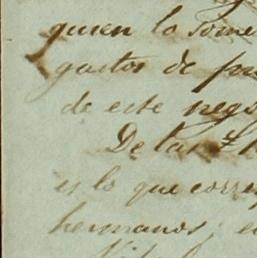 quien lo some
gastos de
de este nego
De las
es lo que corres
hermanos, e